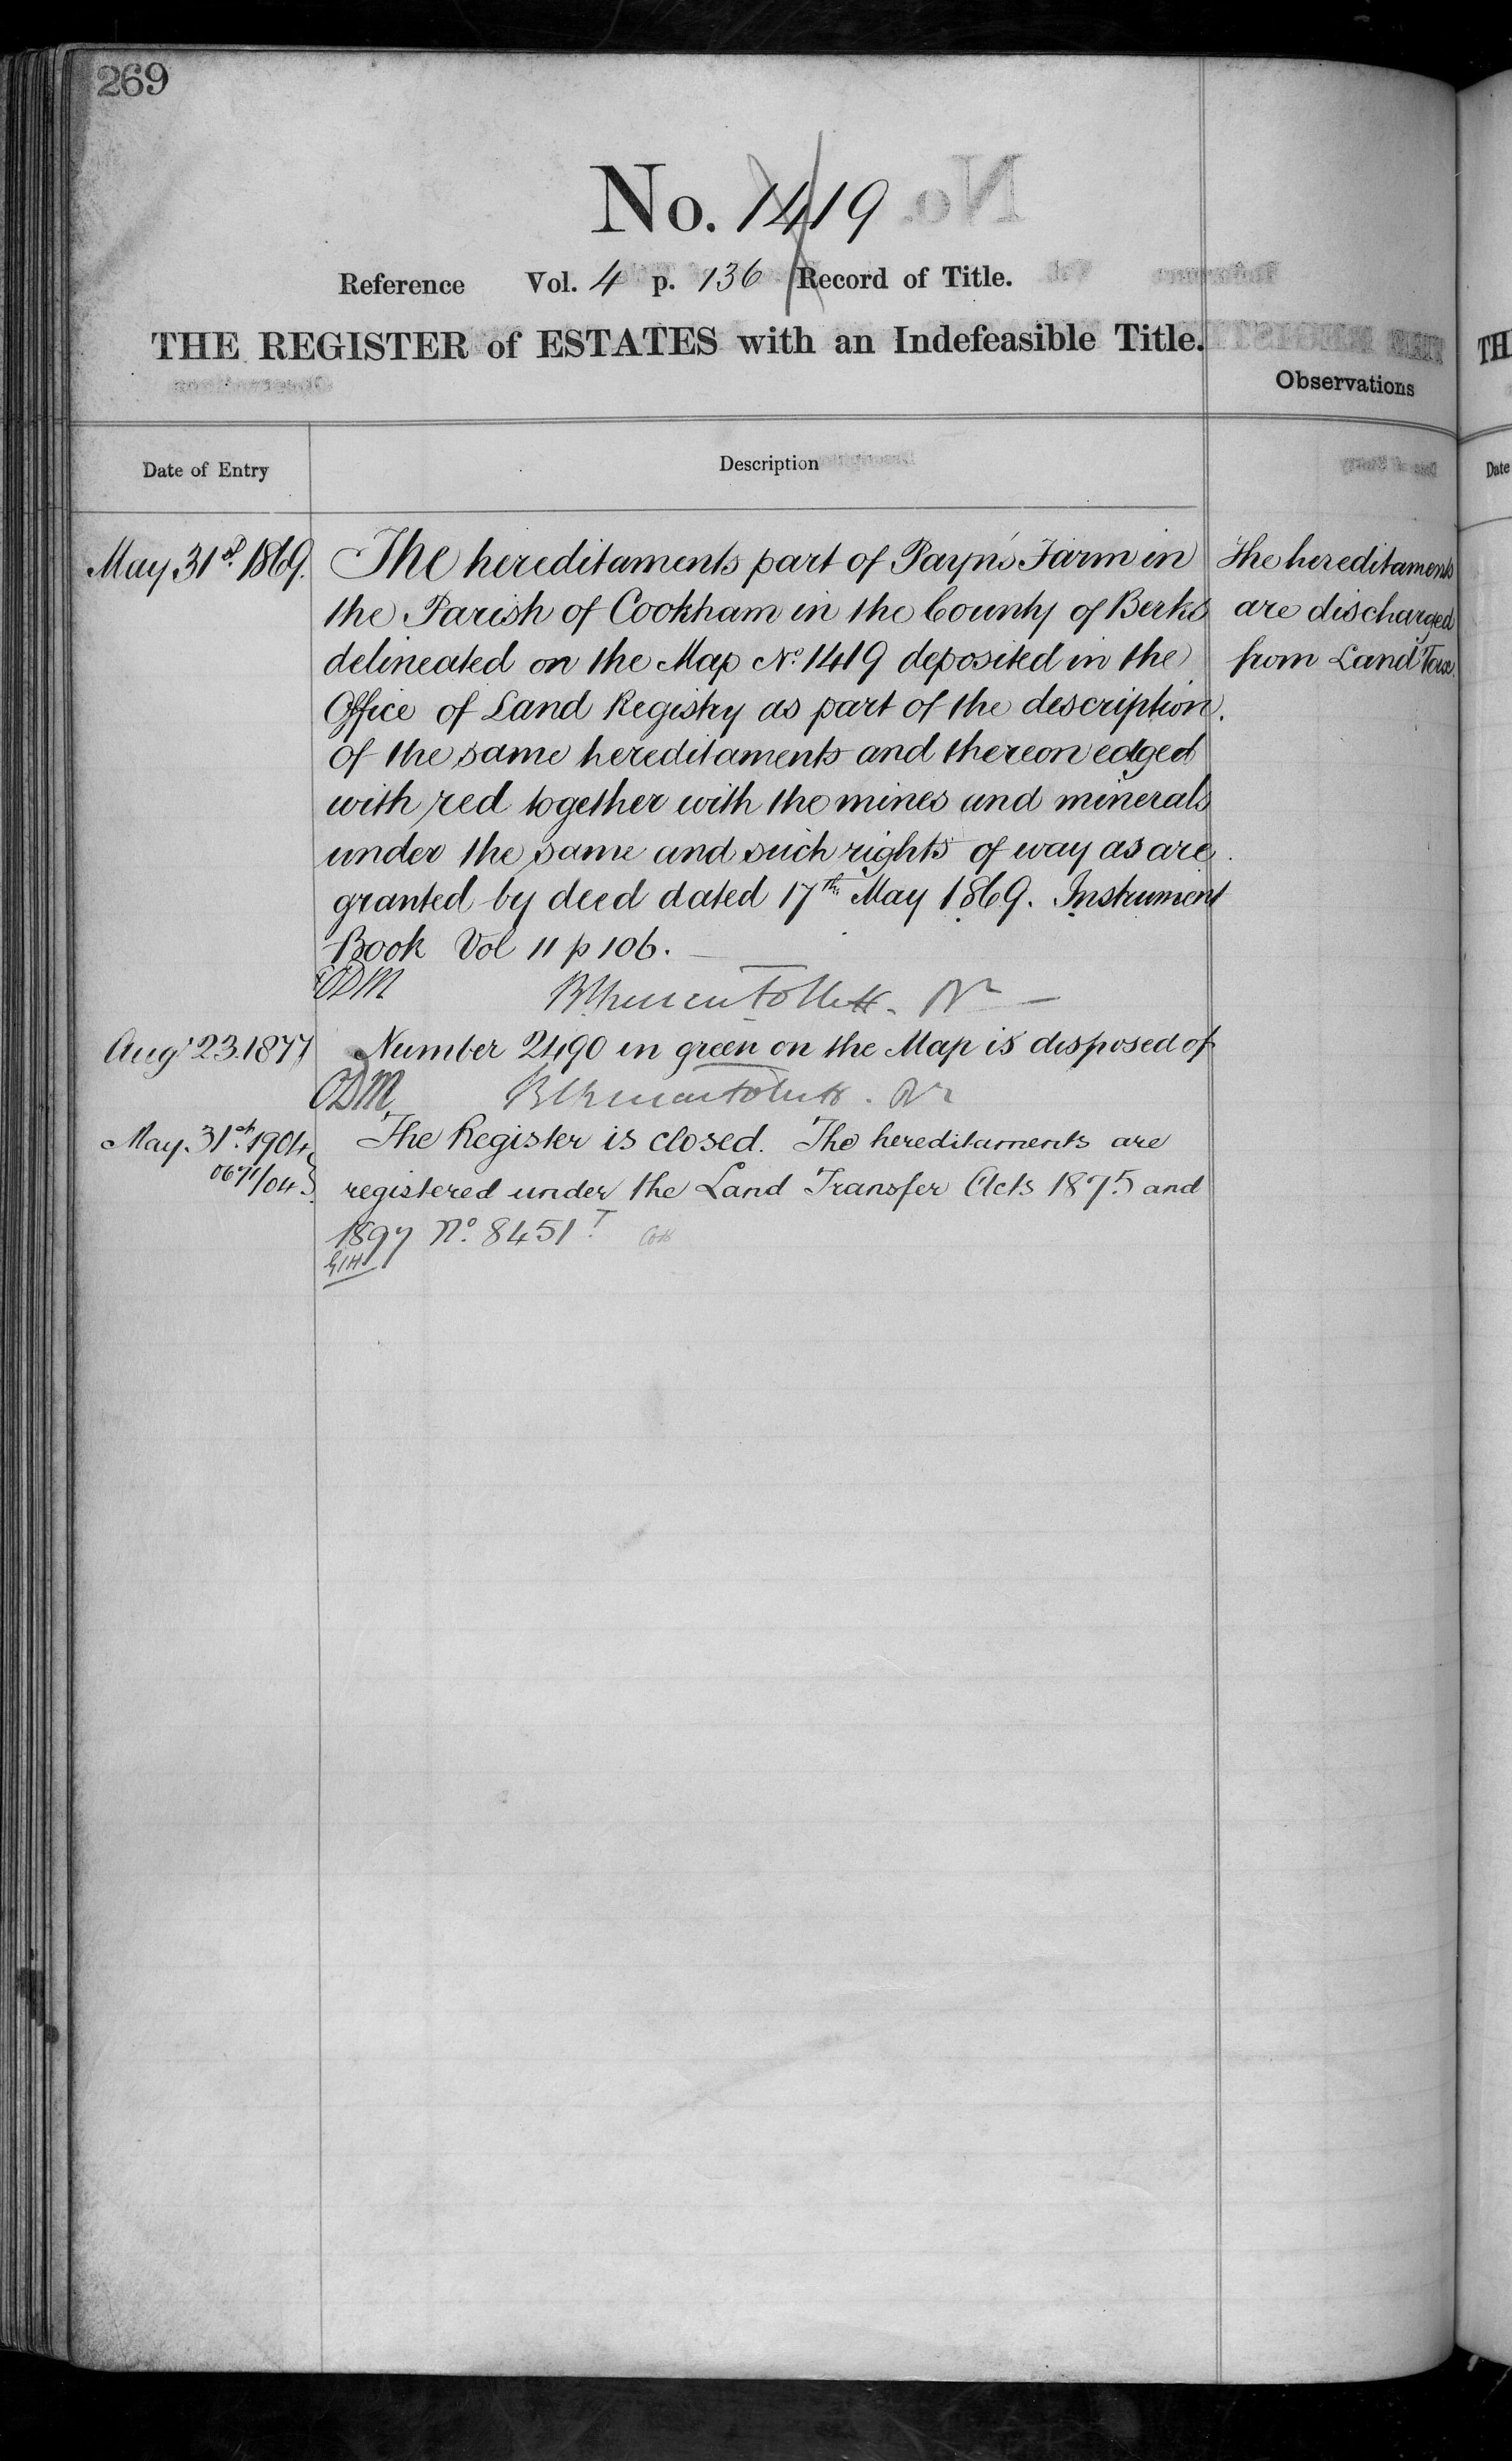 269
No. 1419
Reference Vol. 4 p. 136 Record of Title.
THE REGISTER of ESTATES with an Indefeasible Title.
Observations
Date of Entry
Description
May 31st. 1869.
The hereditaments part of Payn's Farm in
the Parish of Cookham in the County of Berks
delineated on the Map No. 1419 deposited in the
Office of Land Registry as part of the description
of the same hereditaments and thereon edged
with red together with the mines and minerals
under the same and such rights of way as are
granted by deed dated 17th May 1869. Instrument
Book Vol 11 p 106.
The hereditaments
are discharged
from Land Tax.
Follett
Augt 23. 1877
Number 2490 in green on the Map is disposed of
May. 31st. 1904
0671/04
The Register is closed. The hereditaments are
registered under the Land Transfer Acts 1875 and
1897 No. 8451 T
TH
Date